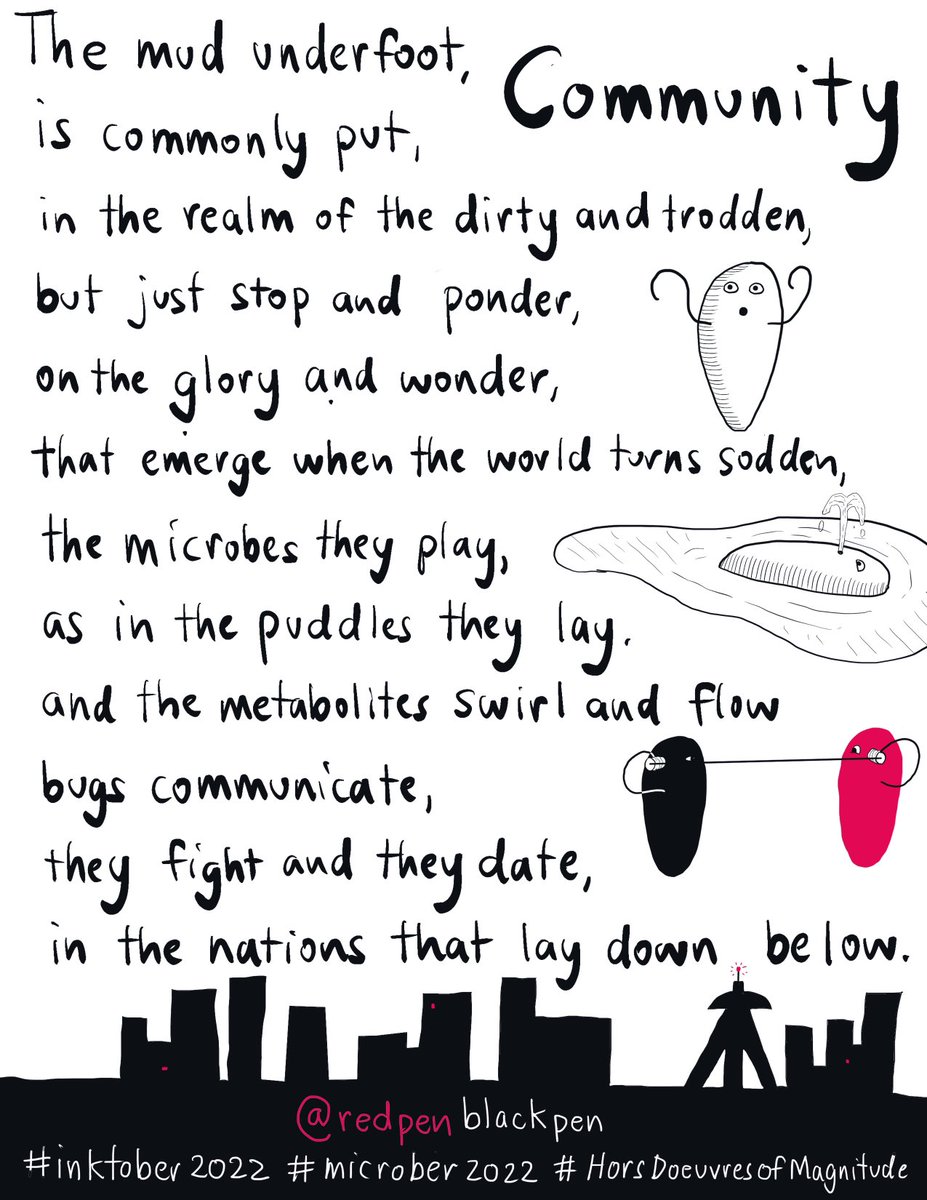 Community
The mud underfoot,
is commonly put,
in the realm of the dirty and trodden,
but just stop and ponder,
on the glory and wonder,
that emerge when the world turns sodden,
the microbes they play,
as in the puddles they lay.
and the metabolites swirl and flow
bugs communicate,
they fight and they date,
in the nations that lay down below.
@redpenblackpen
#inktober2022 #microber2022 #HorsDoeuvresofMagnitude